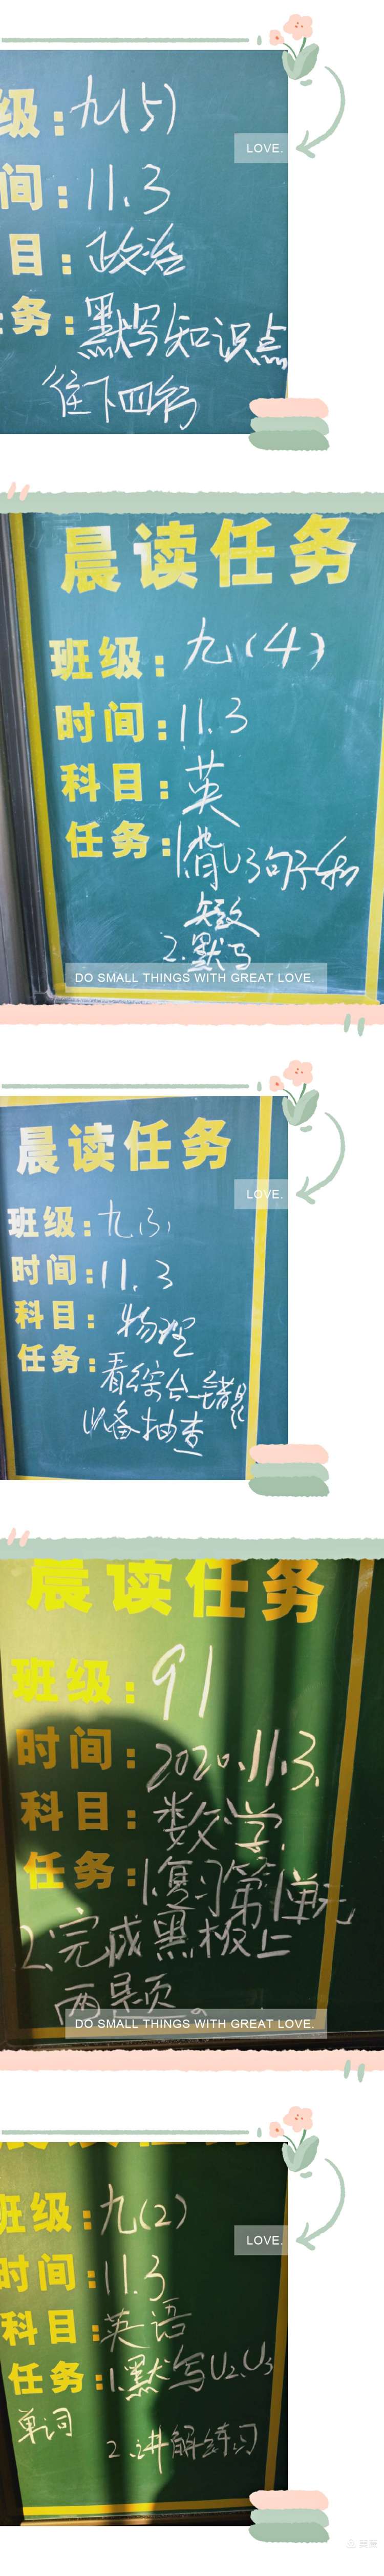 级：九(5)
LOVE.
间：11.3
目：政治
务：默写知识点
往下四行
晨读任务
班级：九(4)
时间：11.3
科目：英
任务：1.背U3句子和
短文
2.默写
DO SMALL THINGS WITH GREAT LOVE.
晨读任务
LOVE.
班级：九(3)
时间：11.3
科目：物理
任务：看综合一错题
以备抽查
晨读任务
班级：91
时间：2020.11.3.
科目：数学.
任务：1.复习第1单元
2.完成黑板上
两
DO SMALL THINGS WITH GREAT LOVE.
班级：九(2)
LOVE.
时间：11.3
科目：英语
任务：1.默写U2、U3
单词
2.讲解练习